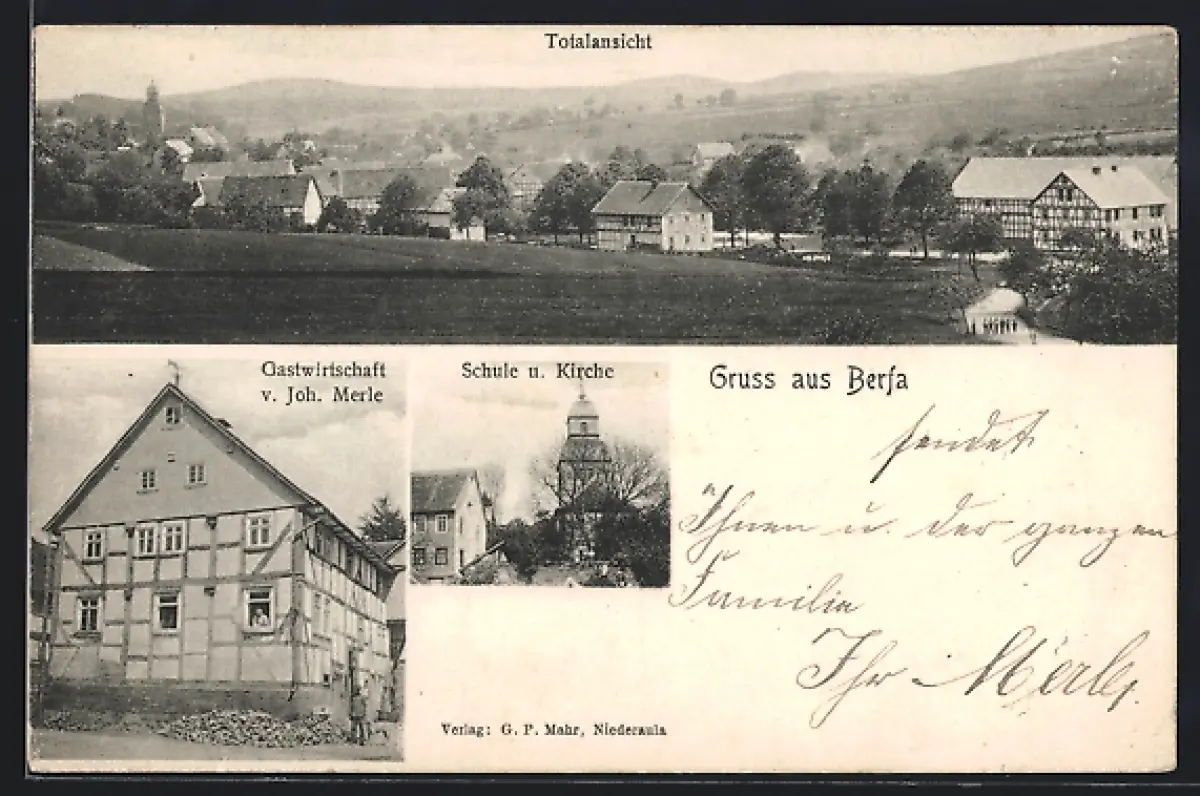 Totalansicht
Gastwirtschaft
v. Joh. Merle
Schule u. Kirche
Gruss aus Berfa
sendet
Ihnen u. der ganzen
Familie
Ihr Merle
Verlag: G. P. Mahr, Niederaula